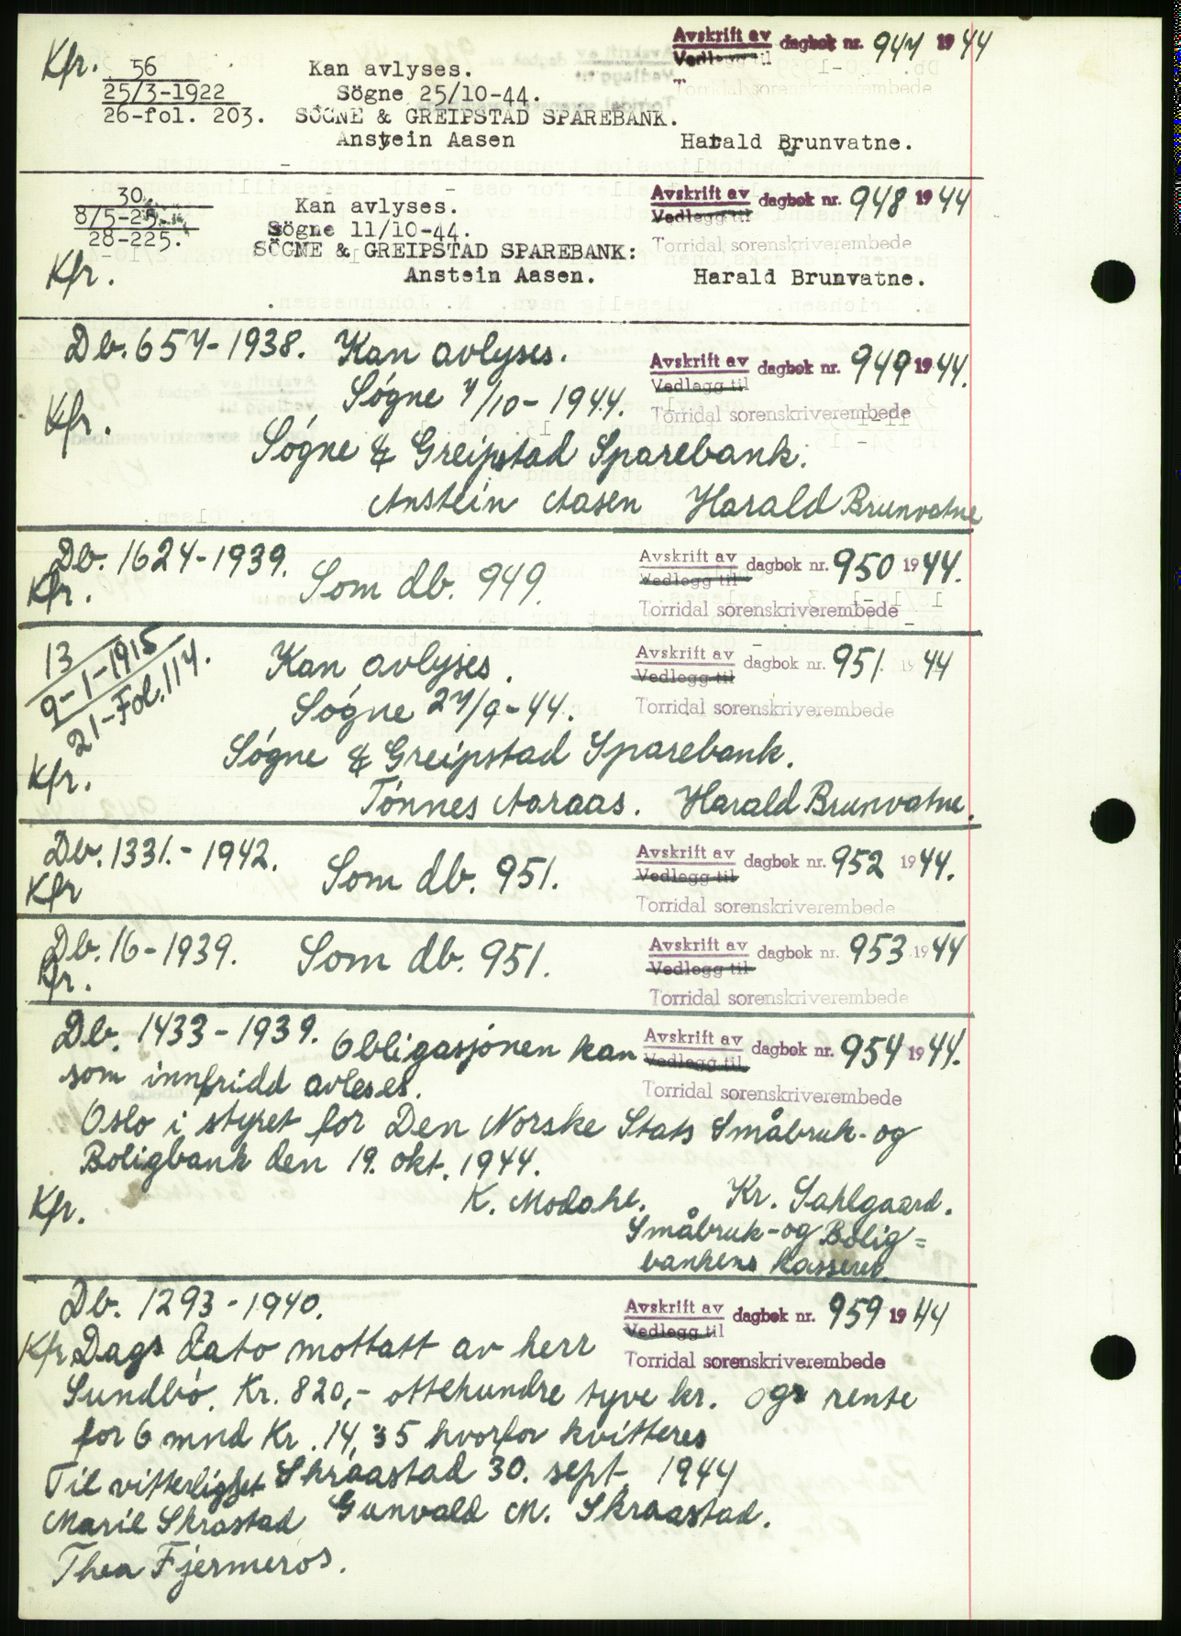 Kfr. 56 Kan avlyses. Avskrift av dagbok nr. 947 1944
25/3-1922 Søgne 25/10-44. Vedlegg til
26-fol. 203. SÖGNE & GREIPSTAD SPAREBANK. Torridal sorenskriverembede
Anstein Aasen Harald Brunvatne.
30 Kan avlyses. Avskrift av dagbok nr. 948 1944
8/5-25. Søgne 11/10-44. Vedlegg til
28-225. SÖGNE & GREIPSTAD SPAREBANK: Torridal sorenskriverembede
Kfr. Anstein Aasen. Harald Brunvatne.
Db. 657-1938. Kan avlyses. Avskrift av dagbok nr. 949 1944.
Søgne 7/10-1944. Vedlegg til
Kfr. Torridal sorenskriverembede
Søgne & Greipstad Sparebank.
Anstein Aasen Harald Brunvatne
Db. 1624-1939. Som db. 949. Avskrift av dagbok nr. 950 1944.
Kfr. Vedlegg til
Torridal sorenskriverembede
13 Kan avlyses. Avskrift av dagbok nr. 951 1944
9-1-1915 Søgne 27/9-44. Vedlegg til
21-Fol. 117. Torridal sorenskriverembede
Kfr. Søgne & Greipstad Sparebank.
Tønnes Aaraas. Harald Brunvatne.
Db. 1331.-1942. Som db. 951. Avskrift av dagbok nr. 952 1944.
Kfr Vedlegg til
Torridal sorenskriverembede
Db. 16-1939. Som db. 951. Avskrift av dagbok nr. 953 1944
Kfr. Vedlegg til
Torridal sorenskriverembede
Db. 1433-1939. Obligasjonen kan Avskrift av dagbok nr. 954 1944.
som innfridd avleses. Vedlegg til
Torridal sorenskriverembede
Oslo i styret for Den Norske Stats Småbruk- og
Boligbank den 19. okt. 1944.
Kfr. K. Modahl. Kr. Sahlgaard.
Småbruk-og Bolig=
bankens kasserer.
Db. 1293-1940. Avskrift av dagbok nr. 959 1944
Vedlegg til
Kfr Dags Dato mottatt av herr Torridal sorenskriverembede
Sundbø. Kr. 820,- ottehundre tyve kr. ogs rente
for 6 mnd Kr. 14,35 hvorfor kvitteres
Til vitterlighet Skraastad 30. sept. 1944
Marie Skrastad Gunvald M. Skraastad.
Thea Fjermeros.